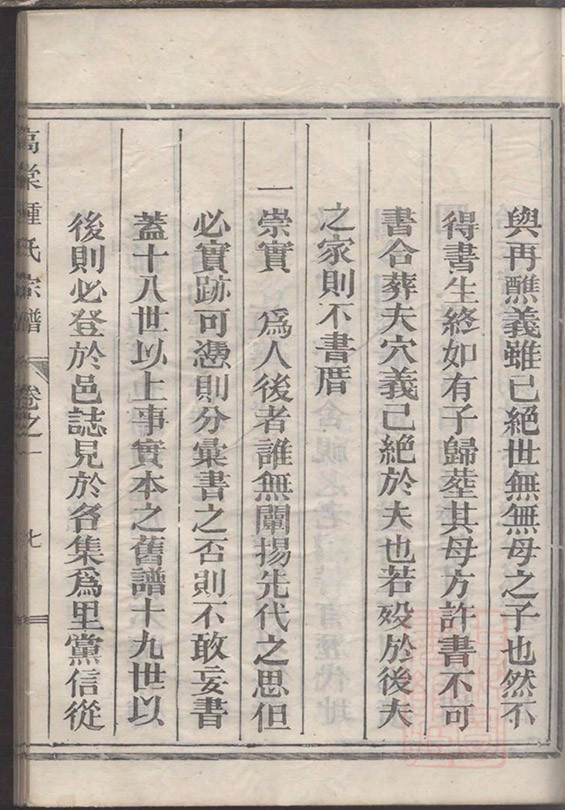 與再醮義雖已絕世無無母之子也然不
得書生終如有子歸塟其母方許書不可
書合葬夫穴義已絕於夫也若歿於後夫
之家則不書厝
一崇實 爲人後者誰無闡揚先代之思但
必實跡可憑則分彙書之否則不敢妄書
蓋十八世以上事實本之舊譜十九世以
後則必登於邑誌見於各集爲里黨信從
高棠鍾氏宗譜 卷之一 七